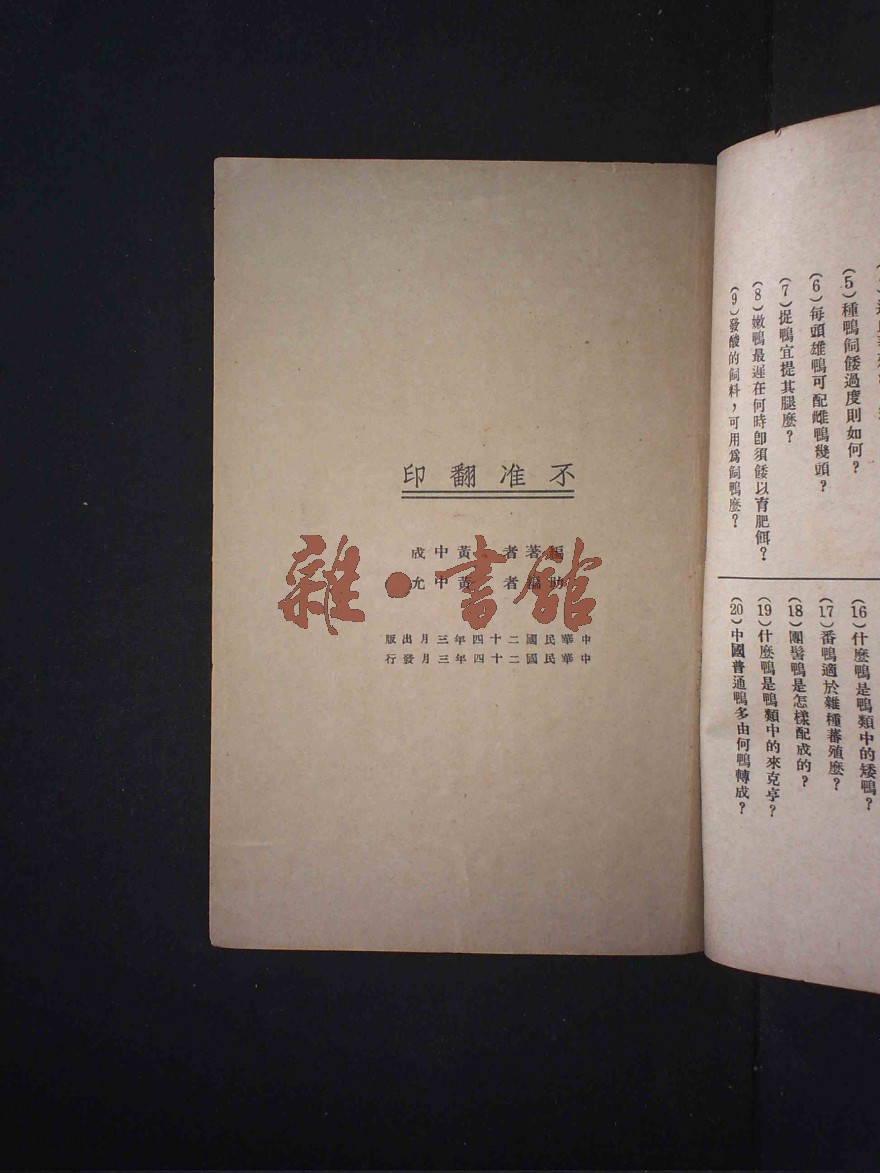 (5)種鴨飼餧過度則如何？
(6)每頭雄鴨可配雌鴨幾頭？
(7)捉鴨宜提其腿麽？
(8)嫩鴨最遲在何時卽須餧以育肥餌？
(9)發酸的飼料，可用爲飼鴨麽？
(16)什麽鴨是鴨類中的矮鴨？
(17)番鴨適於雜種蕃殖麽？
(18)團髻鴨是怎樣配成的？
(19)什麽鴨是鴨類中的來克亭？
(20)中國普通鴨多由何鴨轉成？
不准翻印
編著者 黃中成
助編者 黃中允
中華民國二十四年三月出版
中華民國二十四年三月發行
雜·書館